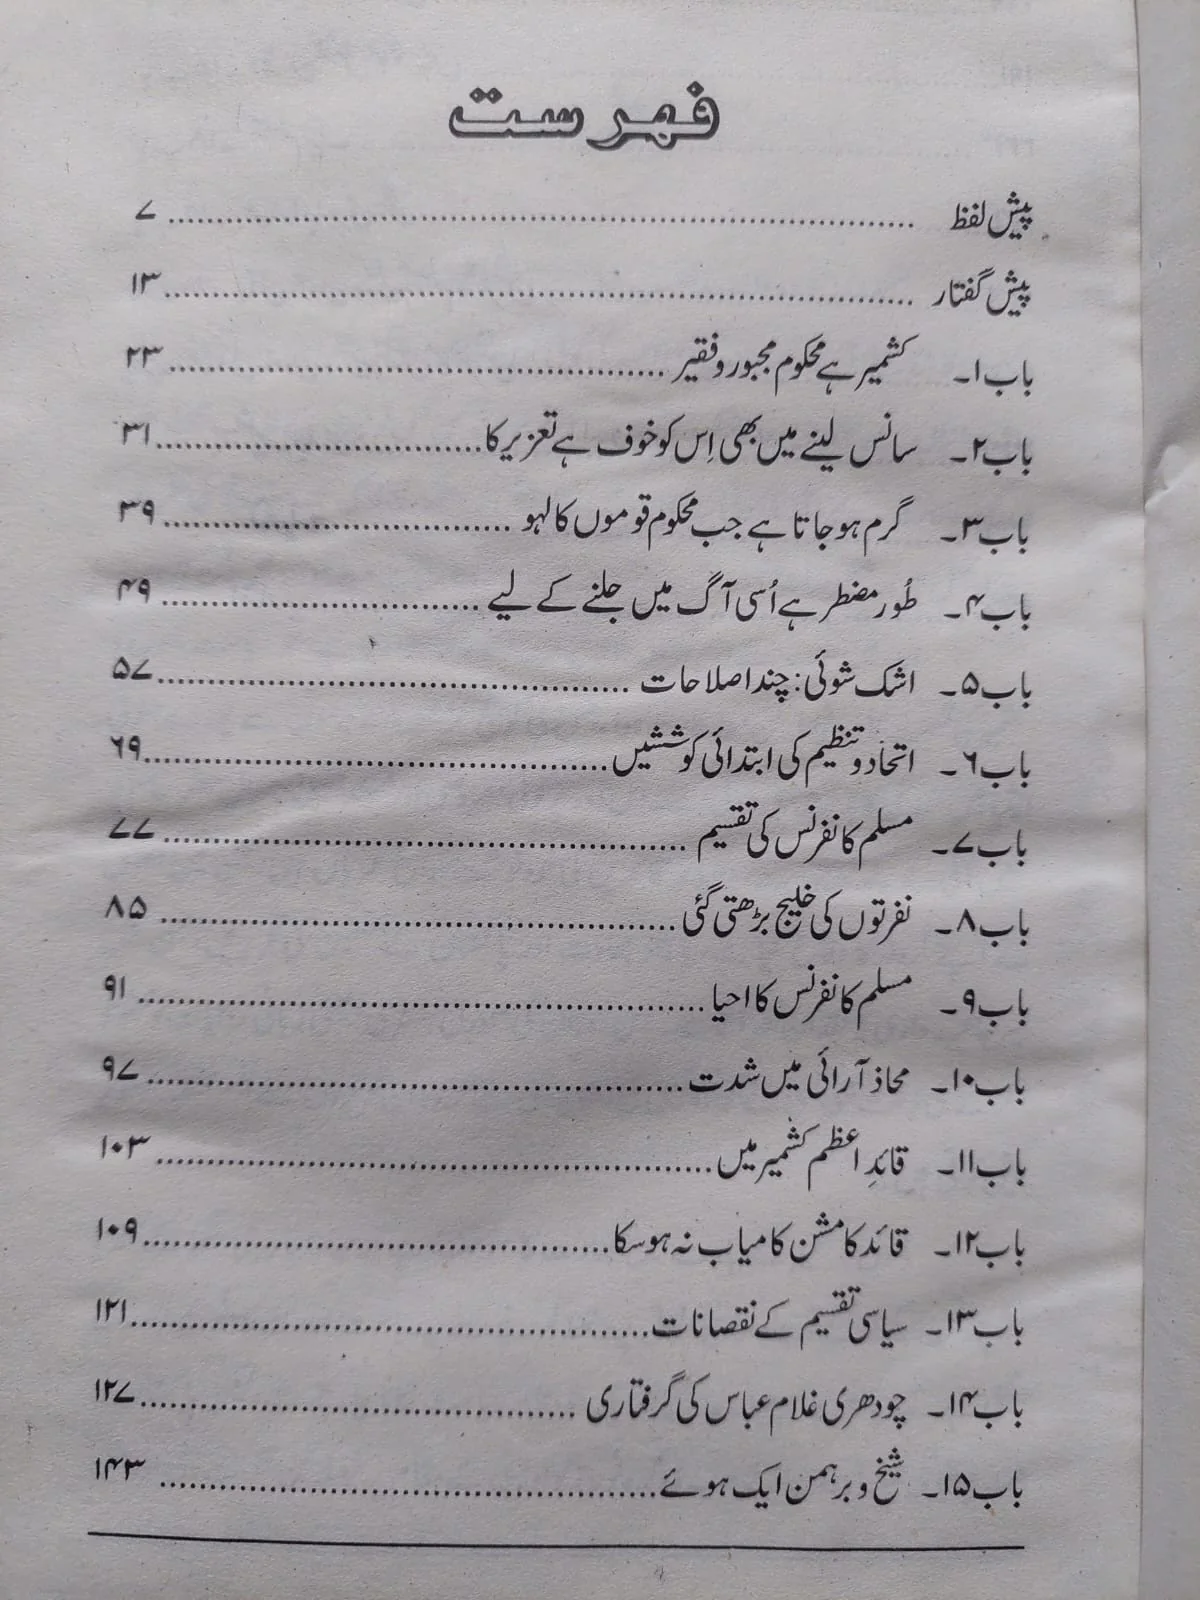 فہرست
پیش لفظ ........ ۷
پیش گفتار ........ ۱۳
باب۱۔ کشمیر ہے محکوم مجبور و فقیر ........ ۲۳
باب۲۔ سانس لینے میں بھی اِس کو خوف ہے تعزیر کا ........ ۳۱
باب۳۔ گرم ہو جاتا ہے جب محکوم قوموں کا لہو ........ ۳۹
باب۴۔ طُور مضطر ہے اُسی آگ میں جلنے کے لیے ........ ۴۹
باب۵۔ اشک شوئی: چند اصلاحات ........ ۵۷
باب۶۔ اتحاد و تنظیم کی ابتدائی کوششیں ........ ۶۹
باب۷۔ مسلم کانفرنس کی تقسیم ........ ۷۷
باب۸۔ نفرتوں کی خلیج بڑھتی گئی ........ ۸۵
باب۹۔ مسلم کانفرنس کا احیا ........ ۹۱
باب۱۰۔ محاذ آرائی میں شدت ........ ۹۷
باب۱۱۔ قائدِ اعظم کشمیر میں ........ ۱۰۳
باب۱۲۔ قائد کا مشن کامیاب نہ ہو سکا ........ ۱۰۹
باب۱۳۔ سیاسی تقسیم کے نقصانات ........ ۱۲۱
باب۱۴۔ چودھری غلام عباس کی گرفتاری ........ ۱۲۷
باب۱۵۔ شیخ و برہمن ایک ہوئے ........ ۱۴۳